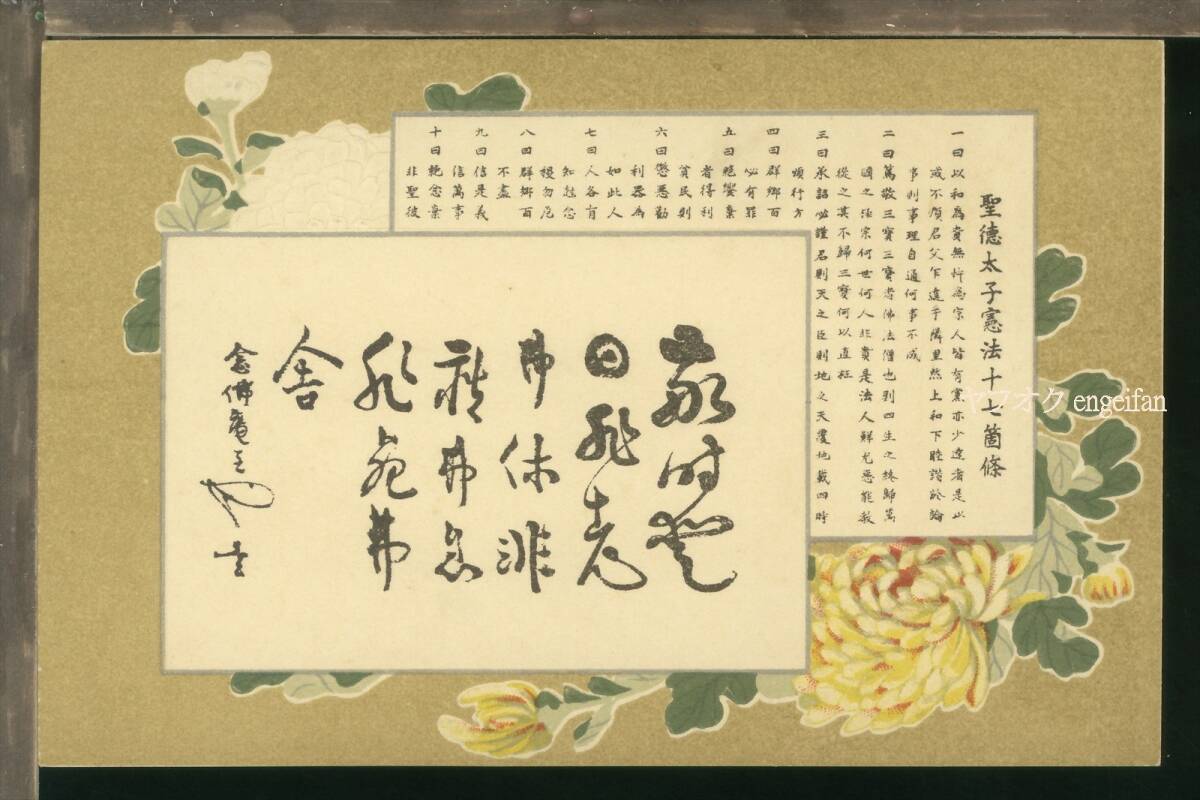 聖德太子憲法十七箇條
一曰以和為貴無忤為宗人皆有黨亦少達者是以
或不順君父乍違于隣里然上和下睦諧於論
事則事理自通何事不成
二曰篤敬三寶三寶者佛法僧也則四生之終歸萬
國之極宗何世何人非貴是法人鮮尤惡能教
從之其不歸三寶何以直枉
三曰承詔必謹君則天之臣則地之天覆地載四時
順行方
四曰群卿百
必有罪
五曰絕饗棄
者得利
貧民則
六曰懲惡勸
利器為
如此人
七曰人各有
知尅念
禝勿危
八曰群卿百
不盡
九曰信是義
信萬事
十曰絕忿棄
非聖彼
敬時愛
日非老
弗休非
疾弗息
非死弗
舍
念佛庵主
ヤフオク engeifan